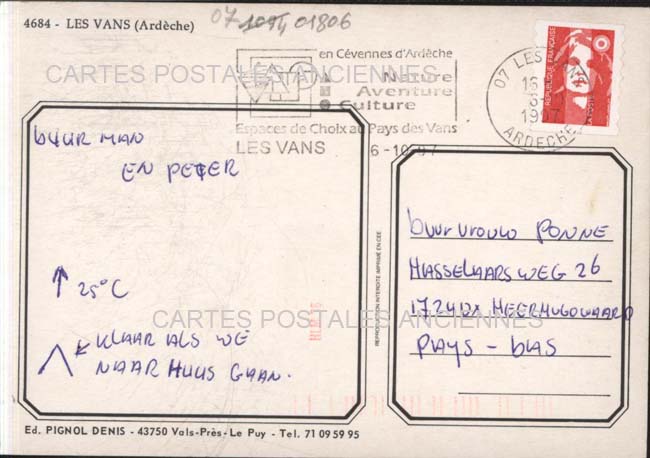 4684 - LES VANS (Ardèche)
07 01806
en Cévennes d'Ardèche
Nature
Aventure
Culture
Espaces de Choix au Pays des Vans
LES VANS 6-10-97
07 LES VANS
16
6-
1997
ARDECHE
REPUBLIQUE FRANÇAISE
LA POSTE
CARTES POSTALES ANCIENNES
BUURMAN
EN PETER
25°C
KLAAR ALS WE
NAAR HUUS GAAN.
REPRODUCTION INTERDITE IMPRIMÉ EN CEE
BUURVROUW PONNE
HASSELAARSWEG 26
1724DX HEERHUGOWAARD
PAYS - BAS
CARTES POSTALES ANCIENNES
Ed. PIGNOL DENIS - 43750 Vals-Près-Le Puy - Tel. 71 09 59 95